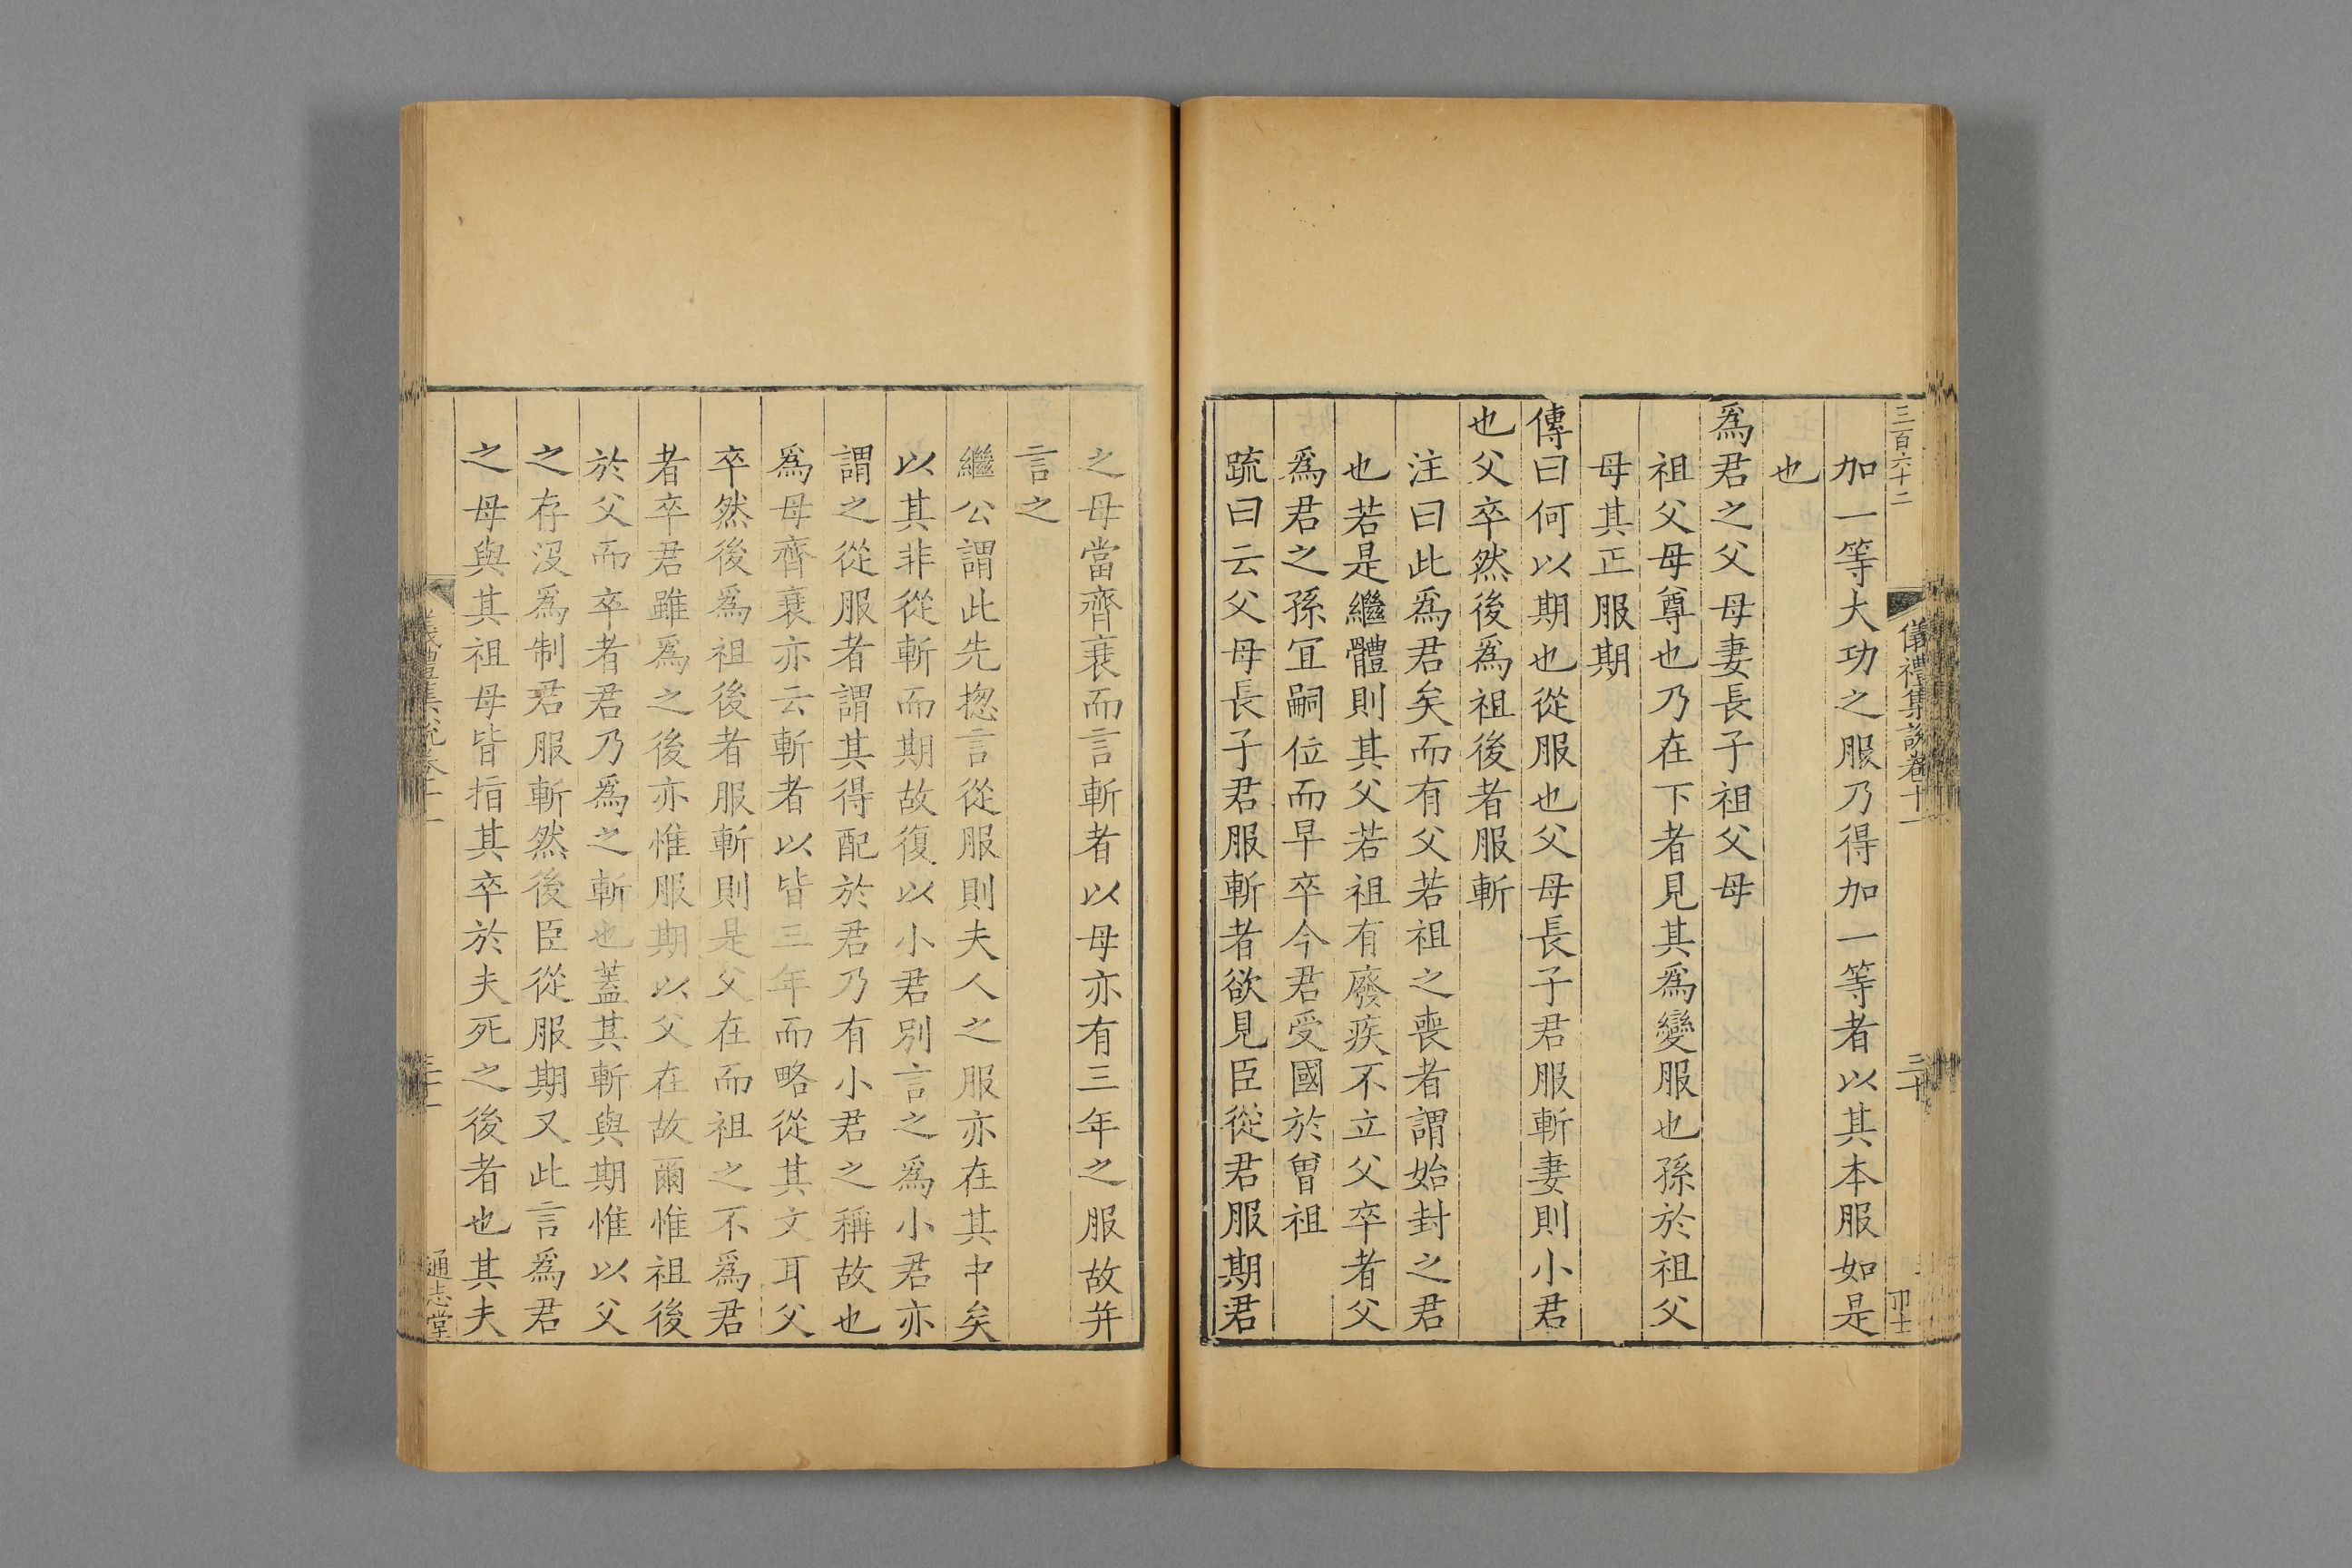 三百六十二
儀禮集說卷十一
三十
加一等大功之服乃得加一等者以其本服如是
也
爲君之父母妻長子祖父母
祖父母尊也乃在下者見其爲變服也孫於祖父
母其正服期
傳曰何以期也從服也父母長子君服斬妻則小君
也父卒然後爲祖後者服斬
注曰此爲君矣而有父若祖之喪者謂始封之君
也若是繼體則其父若祖有廢疾不立父卒者父
爲君之孫宜嗣位而早卒今君受國於曾祖
䟽曰云父母長子君服斬者欲見臣從君服期君
之母當齊衰而言斬者以母亦有三年之服故并
言之
繼公謂此先揔言從服則夫人之服亦在其中矣
以其非從斬而期故復以小君別言之爲小君亦
謂之從服者謂其得配於君乃有小君之稱故也
爲母齊衰亦云斬者以皆三年而略從其文耳父
卒然後爲祖後者服斬則是父在而祖之不爲君
者卒君雖爲之後亦惟服期以父在故爾惟祖後
於父而卒者君乃爲之斬也蓋其斬與期惟以父
之存没爲制君服斬然後臣從服期又此言爲君
之母與其祖母皆指其卒於夫死之後者也其夫
通志堂